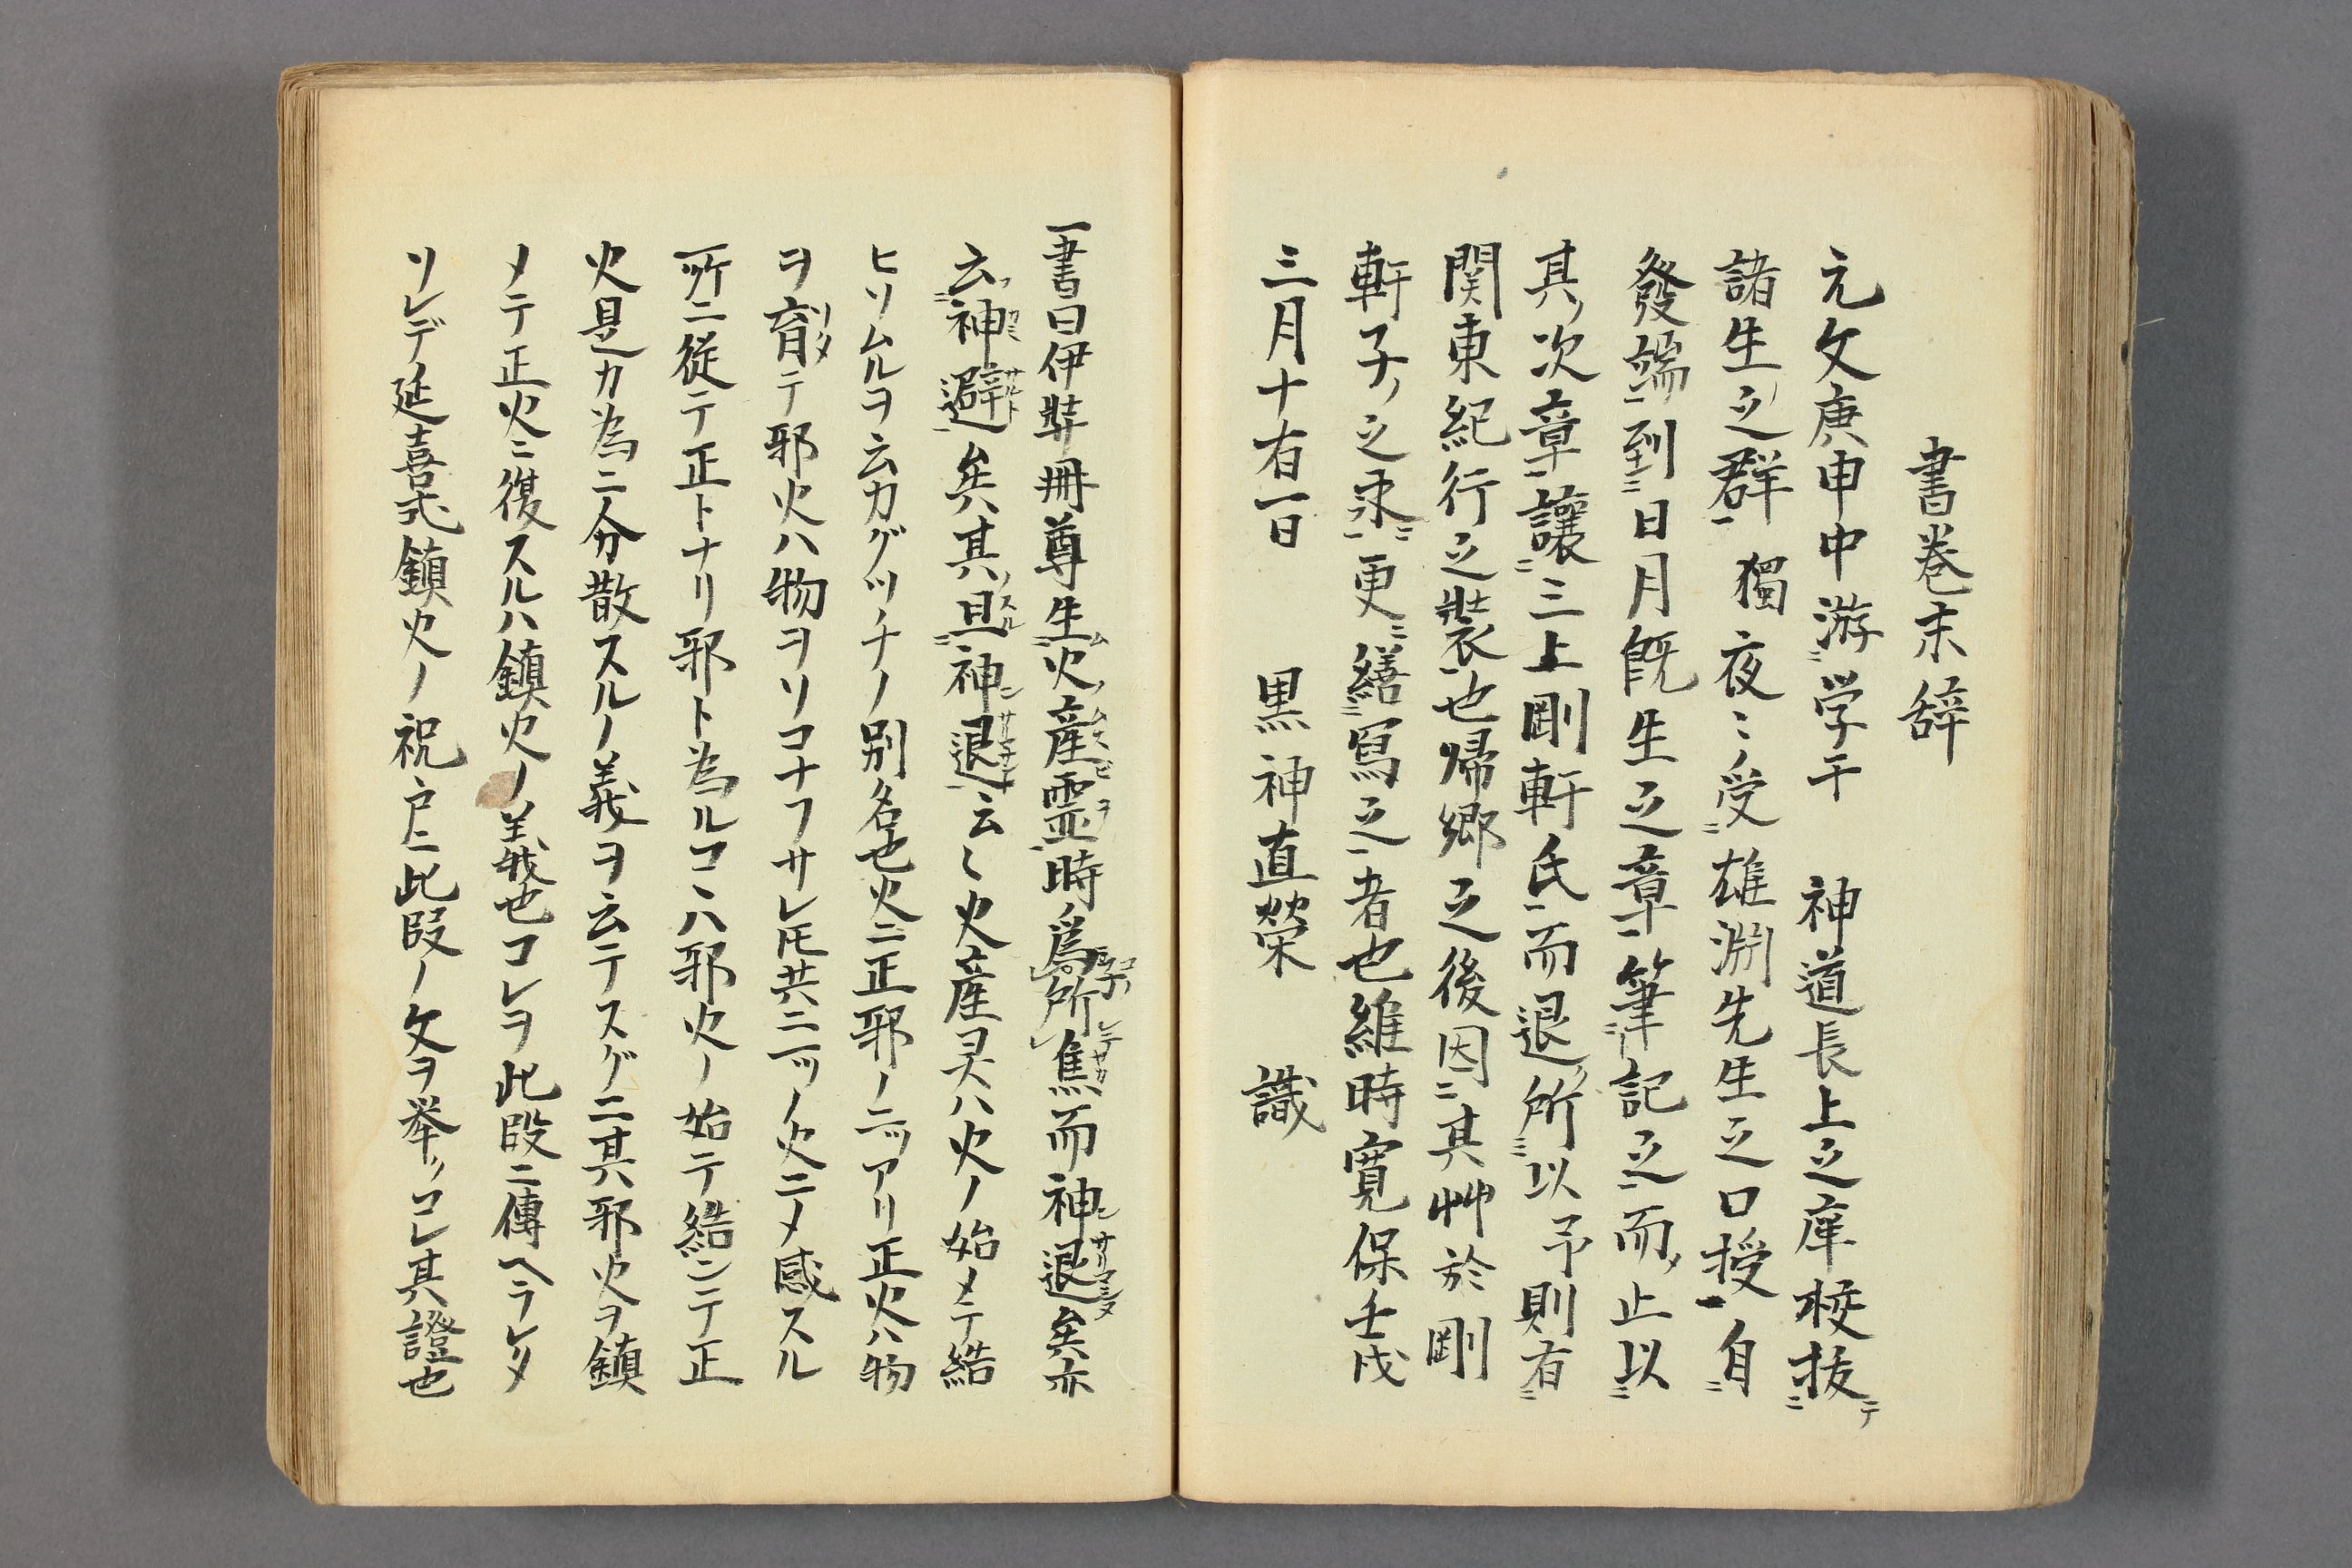 書巻末辞
元文庚申中游学于　神道長上之庠校抜テ
諸生之群獨夜〻受雄渕先生之口授自
發端到日月既生之章筆記之而止以
其次章讓三上剛軒氏而退所以予則有
関東紀行之装也帰郷之後因其艸於剛
軒子之求更繕寫之者也維時寛保壬戌
三月十有一日　　黒神直榮　　識
一書曰伊弉冊尊生ム火ノ産ムスビ霊ヲ時爲子ニ所焦而神退サリマシヌ矣亦
云神カミ避サルト矣其且スル神退云〻火産灵ハ火ノ始メテ結
ヒソムルヲ云カグツチノ別名也火ニ正邪ノ二ツアリ正火ハ物
ヲ育テ邪火ハ物ヲソコナフサレ𪜈共ニ一ツノ火ニメ感スル
所ニ従テ正トナリ邪ト為ルコヽハ邪火ノ始テ結ンテ正
火是カ為ニ分散スルノ義ヲ云テスグニ其邪火ヲ鎮
メテ正火ニ復スルハ鎮火ノ義也コレヲ此段ニ傳ヘラレタ
ソレデ延喜式鎮火ノ祝戸ニ此段ノ文ヲ挙ッコレ其證也